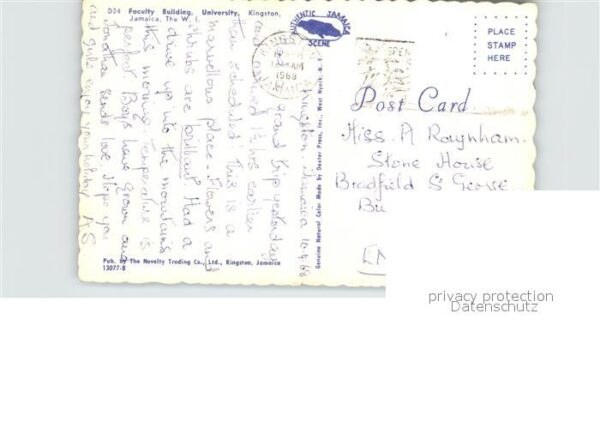 D24 Faculty Building, University, Kingston,
Jamaica, The W. I.
AUTHENTIC JAMAICA
SCENE
PLACE
STAMP
HERE
1968
Post Card
Kingston. Jamaica 10.4.68
grand trip yesterday
and arrived 1½ hrs earlier
than scheduled. This is a
marvellous place. Flowers and
shrubs are brilliant. Had a
drive up into the mountains
this morning. Temperature is
perfect. Boys have grown and
Jonathan sends love. Hope you
and girls enjoy your holiday. AS
Miss. A Raynham.
Stone House
Bradfield S George
Genuine Natural Color Made by Dexter Press, Inc., West Nyack, N. Y.
Pub. by The Novelty Trading Co., Ltd., Kingston, Jamaica
13077-B
privacy protection
Datenschutz